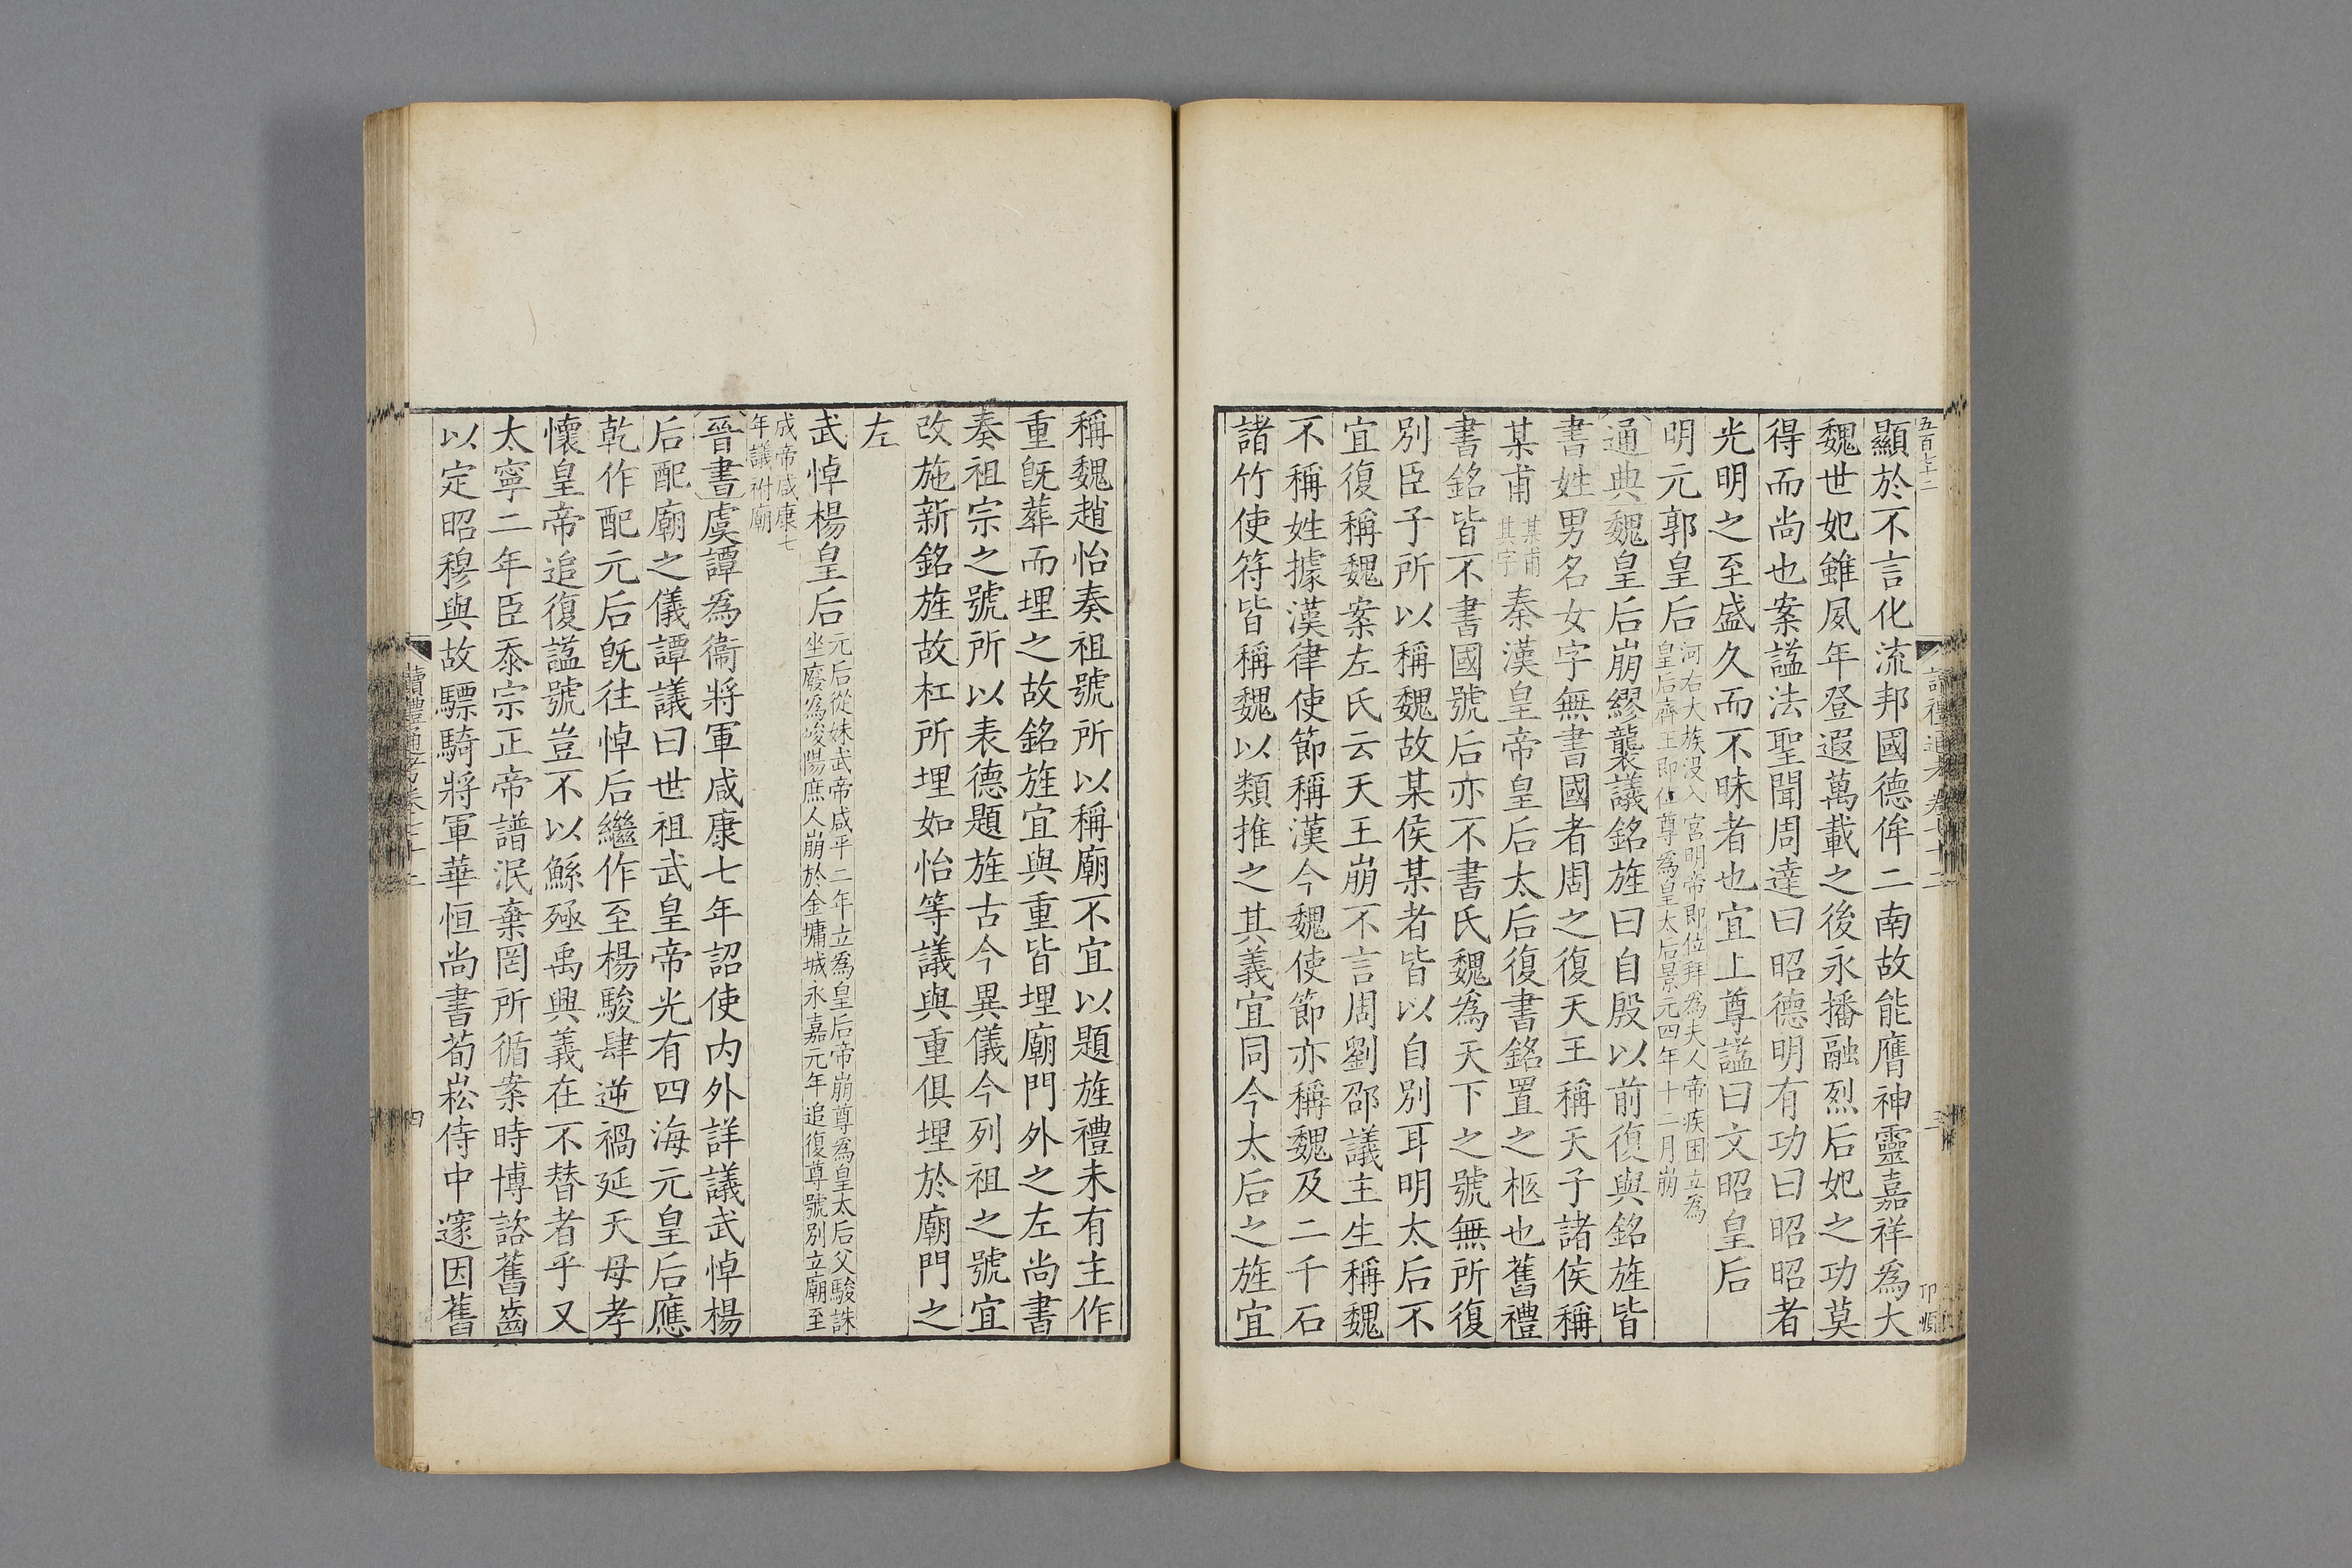 五百七十二
顯於不言化流邦國德侔二南故能膺神靈嘉祥爲大
魏世妃雖夙年登遐萬載之後永播融烈后妃之功莫
得而尚也案諡法聖聞周達曰昭德明有功曰昭昭者
光明之至盛久而不昧者也宜上尊諡曰文昭皇后
明元郭皇后
河右大族沒入宮明帝即位拜爲夫人帝疾困立爲
皇后齊王即位尊爲皇太后景元四年十二月崩
通典魏皇后崩繆襲議銘旌曰自殷以前復與銘旌皆
書姓男名女字無書國者周之復天王稱天子諸侯稱
某甫
某甫
其字
秦漢皇帝皇后太后復書銘置之柩也舊禮
書銘皆不書國號后亦不書氏魏爲天下之號無所復
別臣子所以稱魏故某侯某者皆以自別耳明太后不
宜復稱魏案左氏云天王崩不言周劉邵議主生稱魏
不稱姓據漢律使節稱漢今魏使節亦稱魏及二千石
諸竹使符皆稱魏以類推之其義宜同今太后之旌宜
稱魏趙怡奏祖號所以稱廟不宜以題旌禮未有主作
重旣葬而埋之故銘旌宜與重皆埋廟門外之左尚書
奏祖宗之號所以表德題旌古今異儀今列祖之號宜
改施新銘旌故杠所埋如怡等議與重俱埋於廟門之
左
武悼楊皇后
元后從妹武帝咸平二年立爲皇后帝崩尊爲皇太后父駿誅
坐廢爲峻陽庶人崩於金墉城永嘉元年追復尊號別立廟至
成帝咸康七
年議祔廟
晉書虞譚爲衞將軍咸康七年詔使内外詳議武悼楊
后配廟之儀譚議曰世祖武皇帝光有四海元皇后應
乾作配元后旣往悼后繼作至楊駿肆逆禍延天母孝
懷皇帝追復諡號豈不以鯀殛禹興義在不替者乎又
太寧二年臣忝宗正帝譜泯棄罔所循案時博諮舊齒
以定昭穆與故驃騎將軍華恒尚書荀崧侍中邃因舊
讀禮通考卷七十二
四